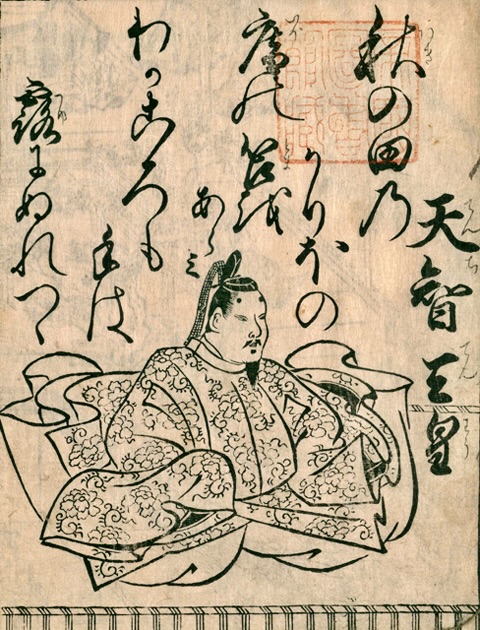 天智天皇
秋の田乃
かりほの
庵の苫を
あらミ
わかころも
手は
露にぬれつゝ